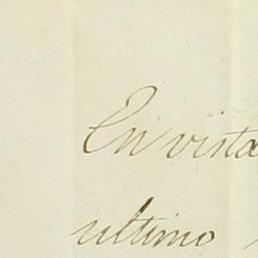 En vista
ultimo